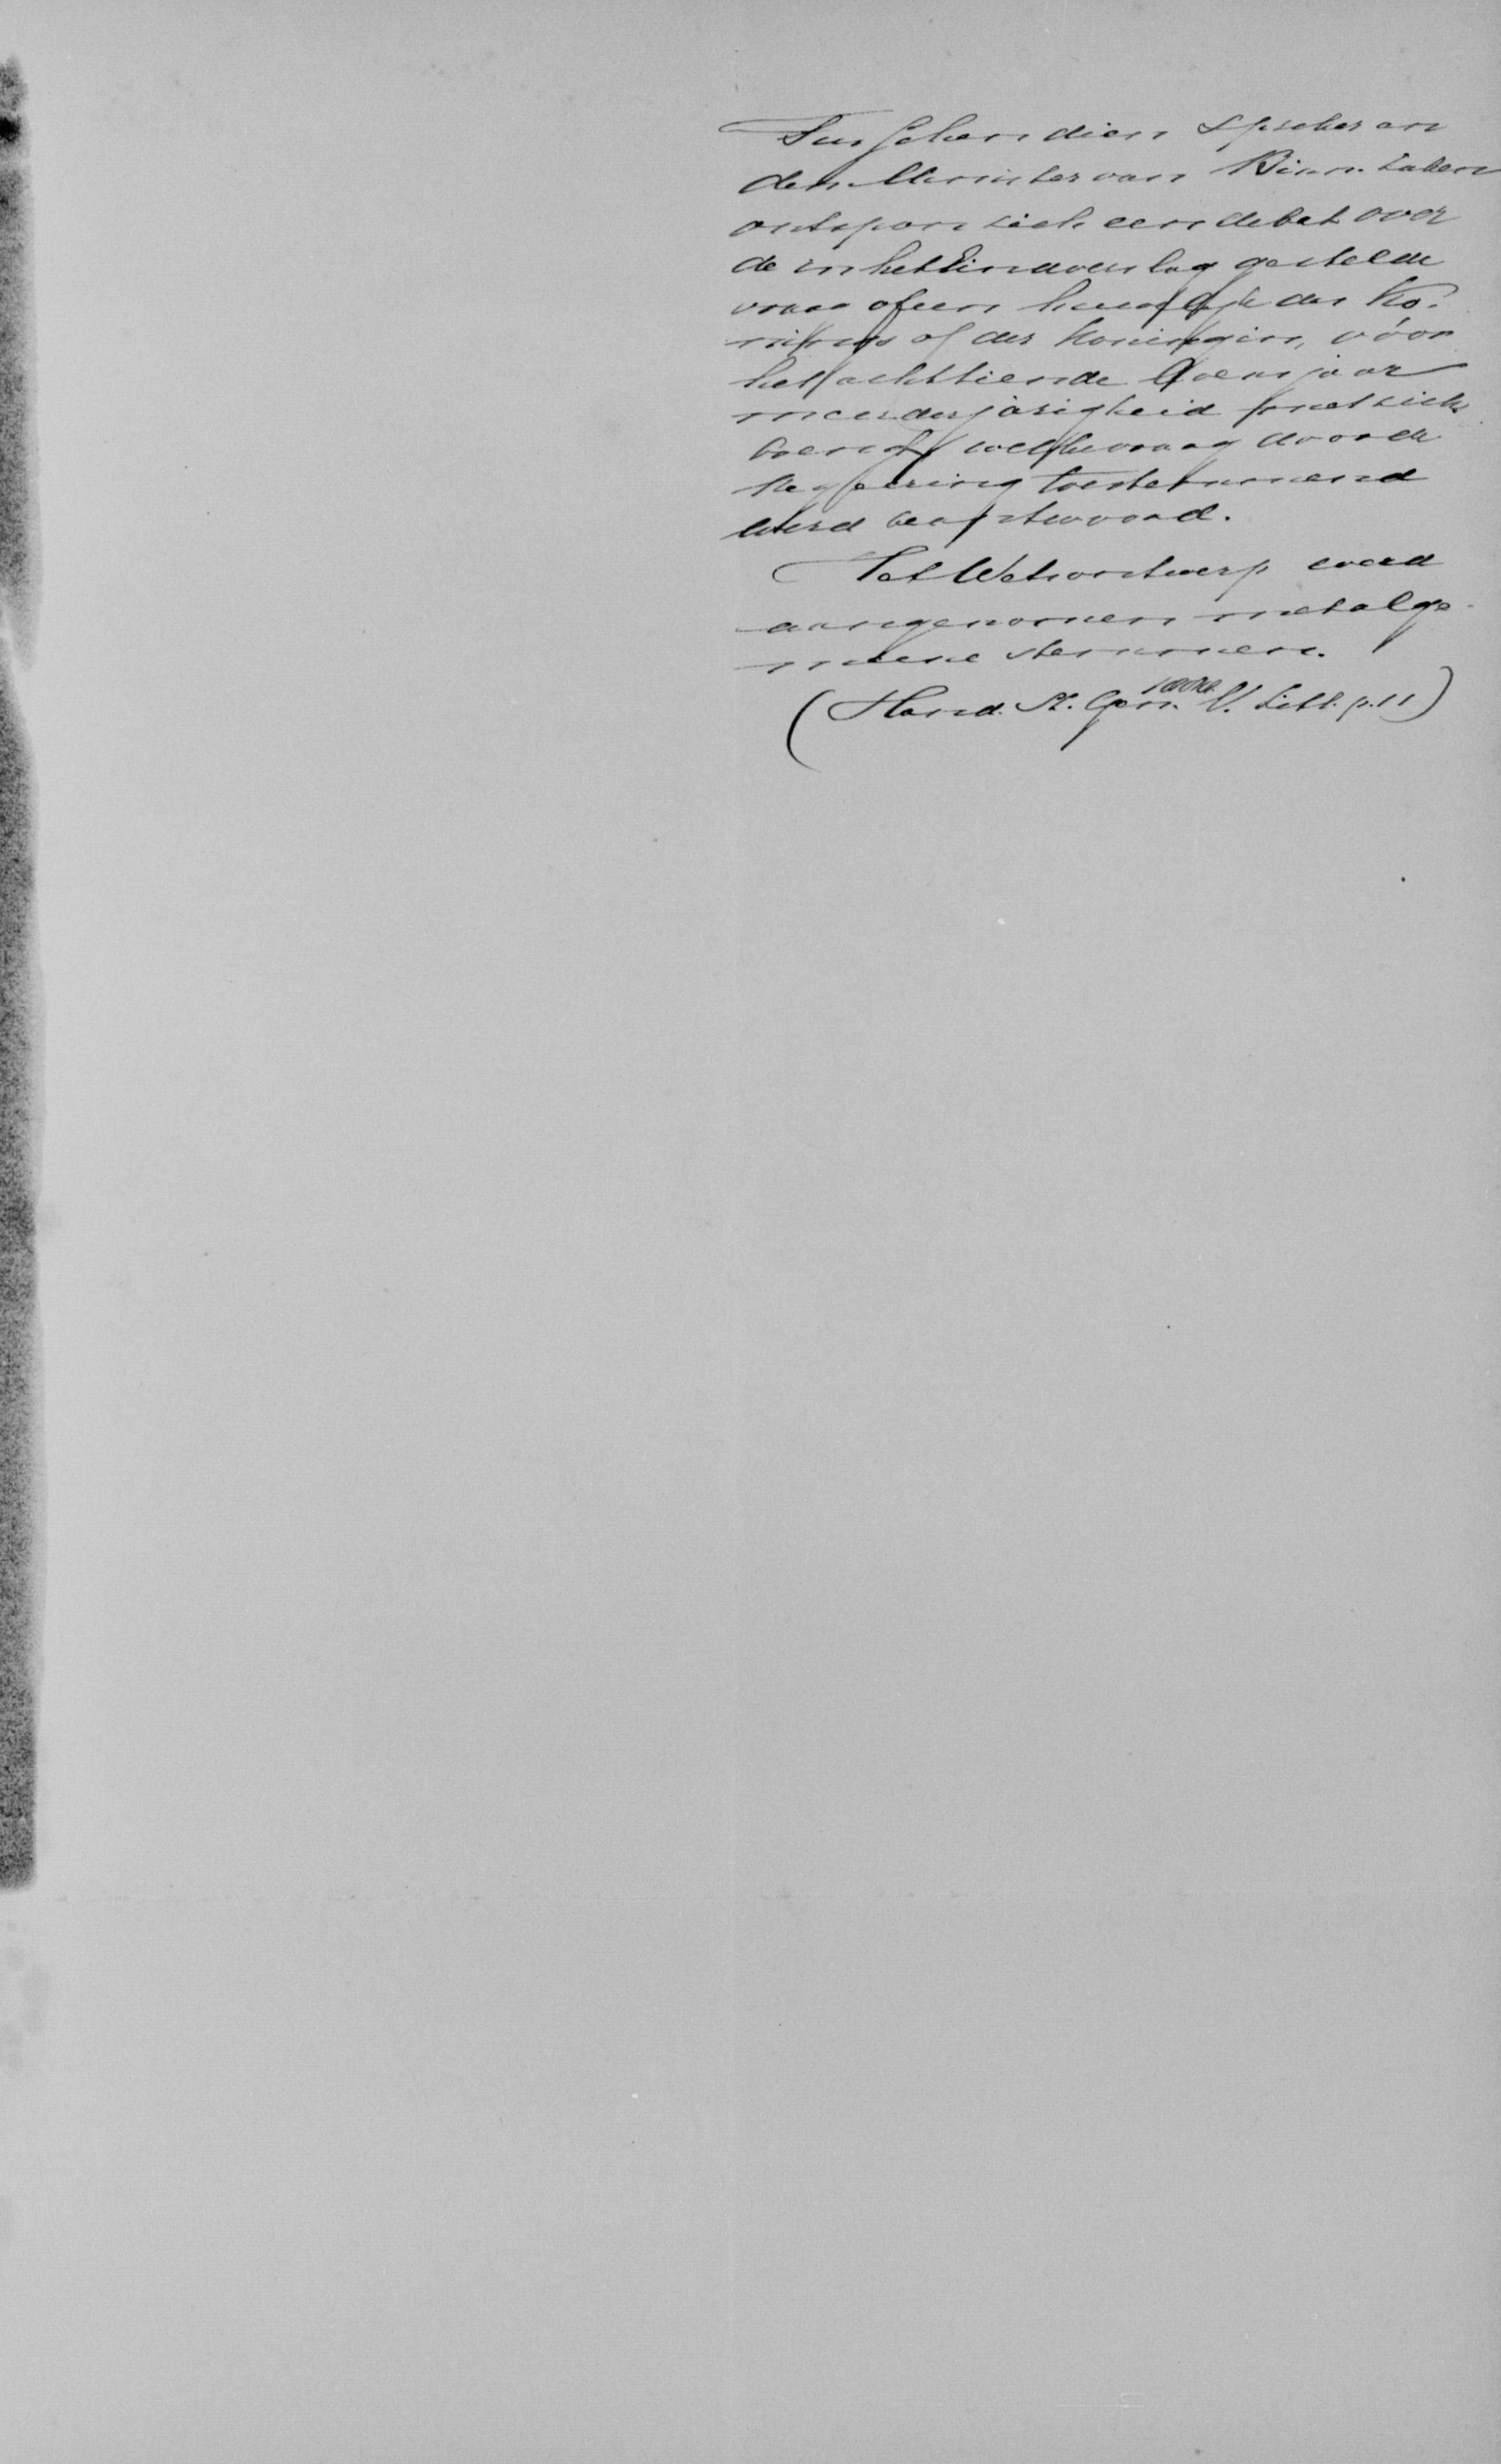 Tusschen dien Spreker en
den Minister van Binn. Zaken
ontspon zich een debat over
de in het Eindverslag gestelde
vraag of een huwelijk des Ko-
nings of der Koningin, vóór
het achttiende levensjaar
meerderjarigheid met zich
brengt welke vraag door de
Regeering toestemmend
werd beantwoord.
Het Wetsontwerp werd
aangenomen met alge-
meene stemmen.
(Hand. St. Gen. V. Zitt. p. 11)